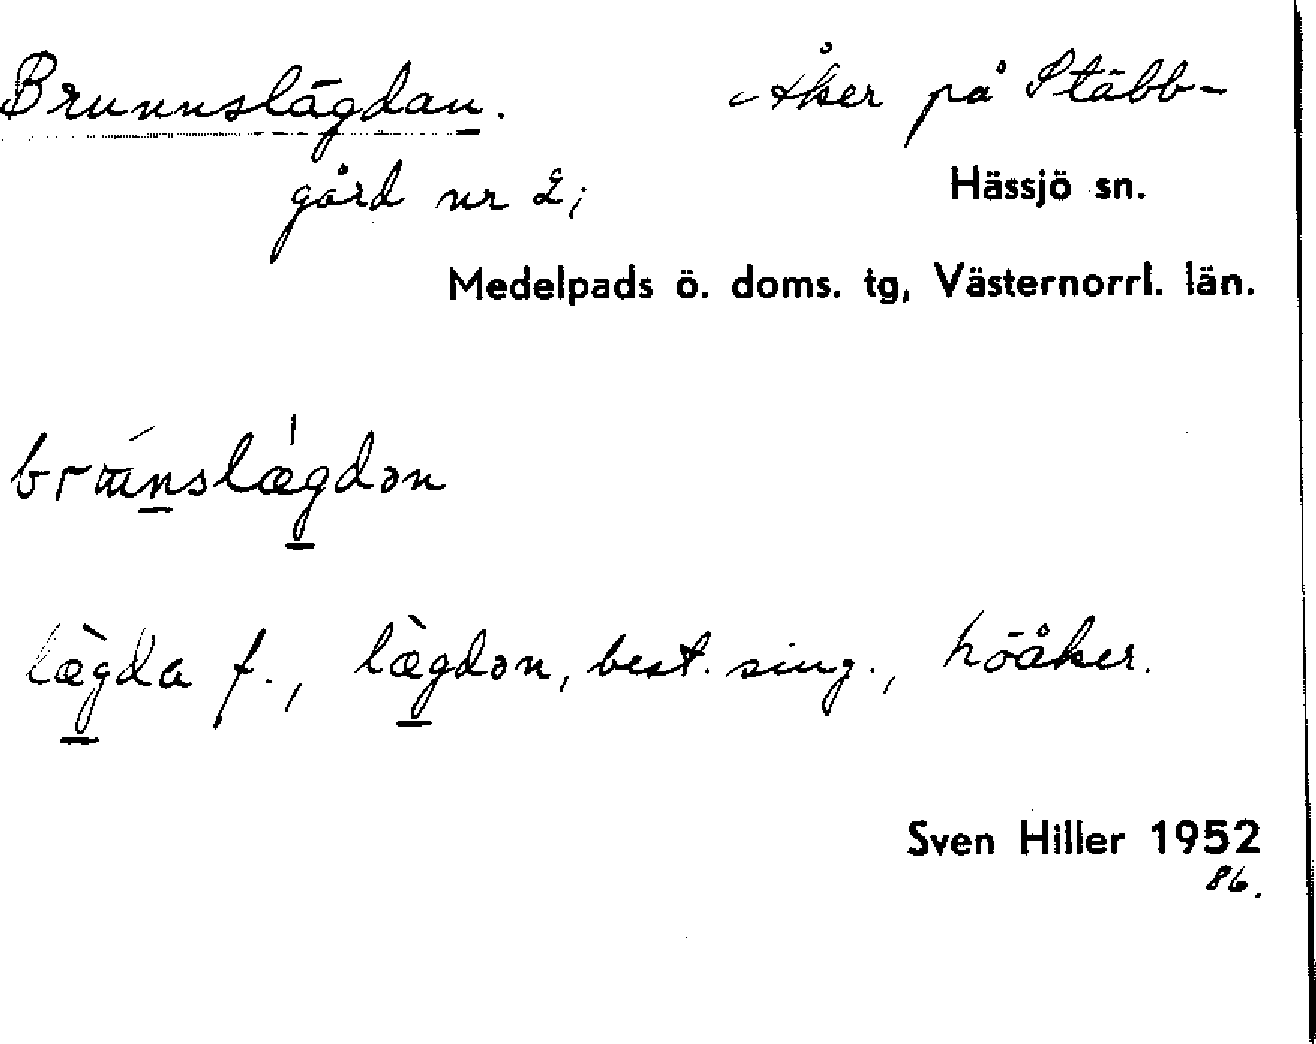 Brunnslägdan. Åker på Stäbb-
gård nr 2; Hässjö sn.
Medelpads ö. doms. tg, Västernorrl. län.
lægda f., lægdən, best. sing., höåker.
Sven Hiller 1952
86.